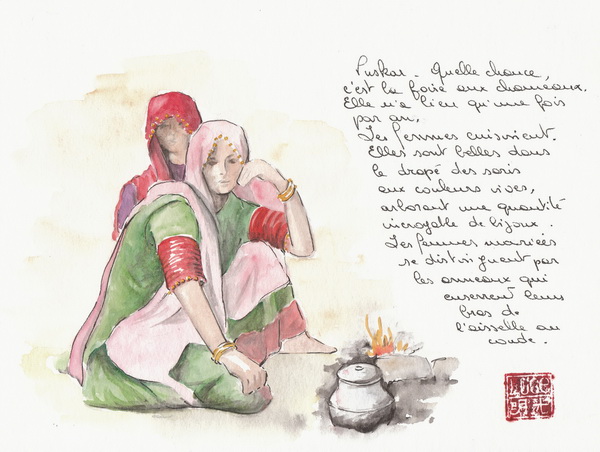 Puskar - Quelle chance,
c'est la foire aux chameaux.
Elle n'a lieu qu'une fois
par an.
Les femmes cuisinent.
Elles sont belles dans
le drapé des saris
aux couleurs vives,
arborant une quantité
incroyable de bijoux.
Les femmes mariées
se distinguent par
les anneaux qui
enserrent leurs
bras de
l'aisselle au
coude.